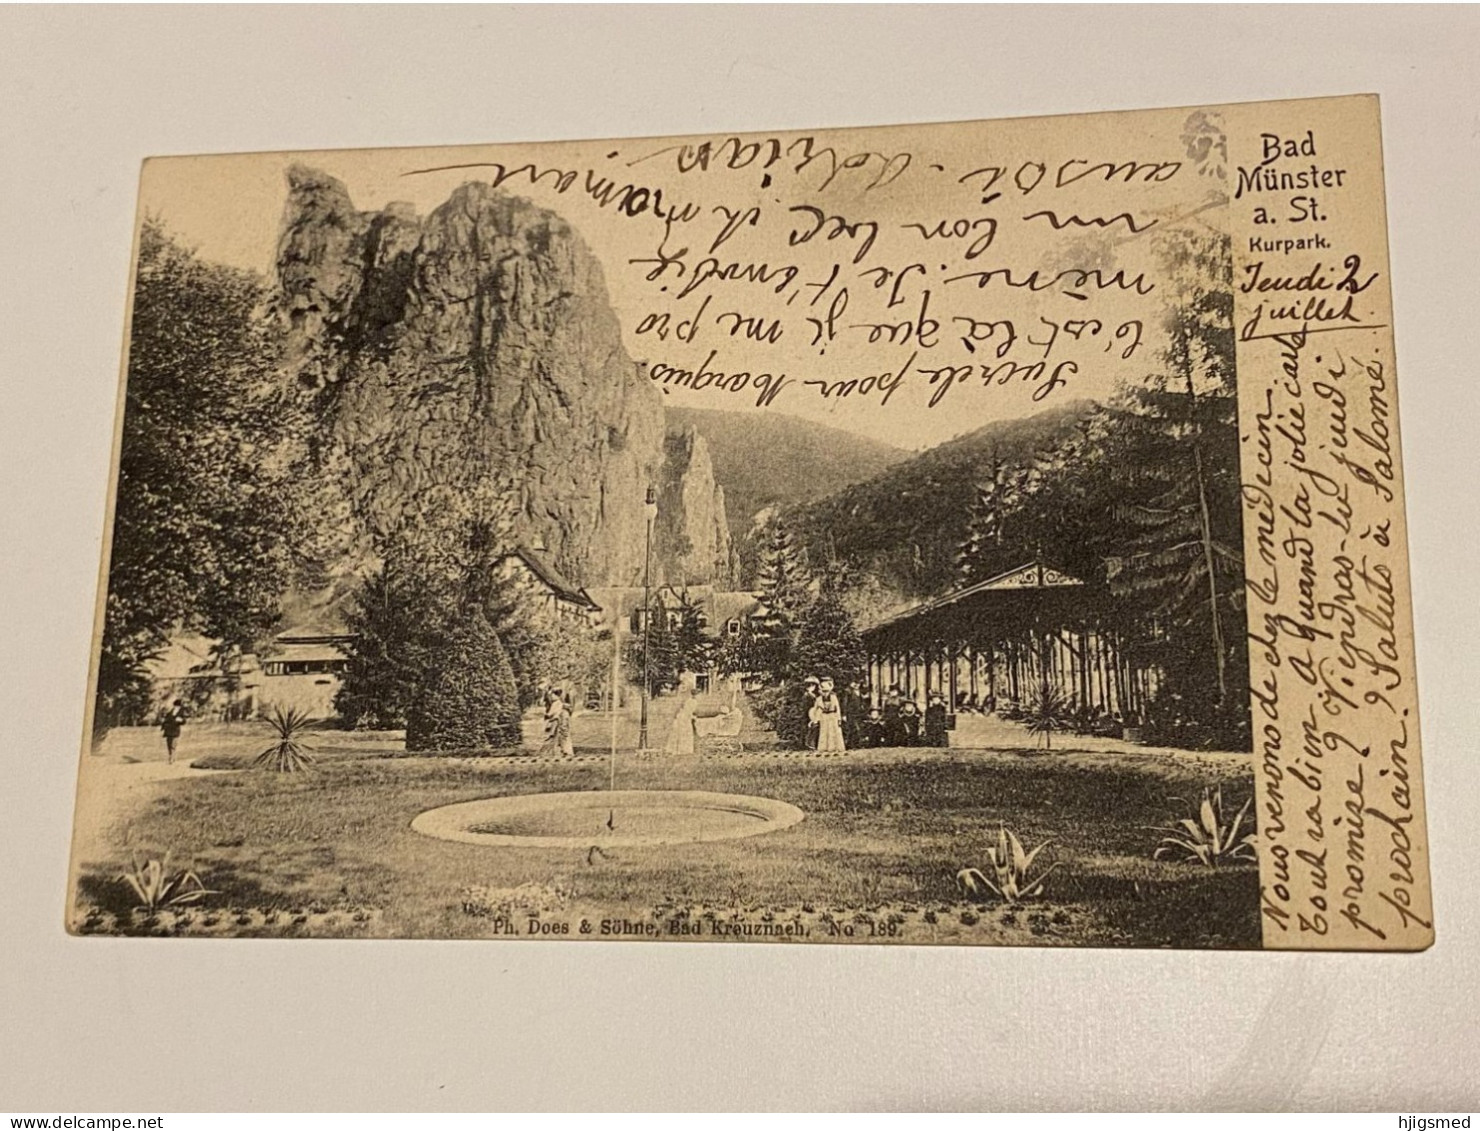 Bad
Münster
a. St.
Kurpark.
Jeudi 2
juillet.
Nous venons de chez le médecin
tout va bien. A quand la jolie
promise? Viendras-tu jeudi
prochain? Saluts à Salomé.
Sucrele pour Marquis.
C'est là que je me pro
mène. Je t'envoie
un bon
aussi. Adrian
maman
Ph. Does & Söhne, Bad Kreuznach, No 189.
hjigsmed